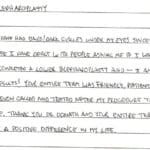 BLEPHAROPLASTY
HAVE HAD BAGS/DARK CIRCLES UNDER MY EYES SINCE
I HAVE DEALT WITH PEOPLE ASKING ME IF I WAS
COMPLETED A LOWER BLEPHAROPLASTY AND — I AM
RESULTS! YOUR ENTIRE TEAM WAS FRIENDLY, PATIENT
EVEN CALLED AND TEXTED AFTER MY PROCEDURE TO
THANK YOU DR. DONATH AND YOUR ENTIRE TEAM
A POSITIVE DIFFERENCE IN MY LIFE.